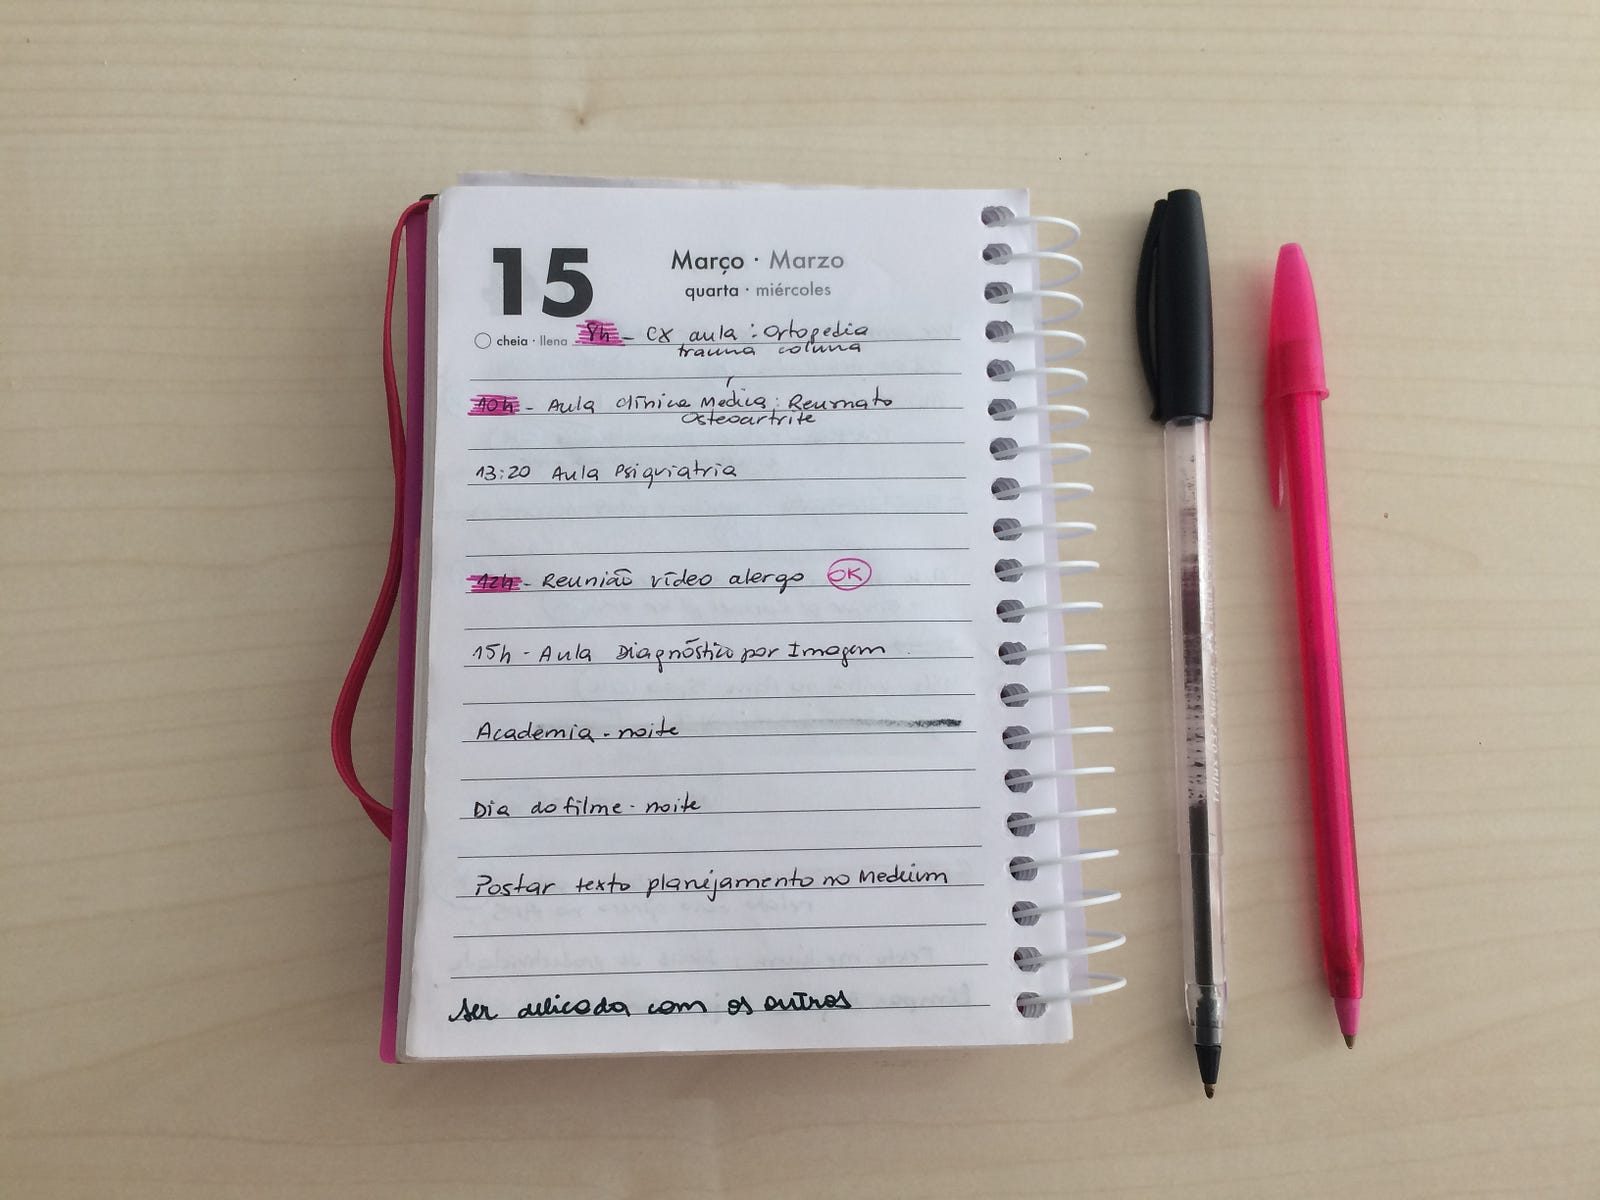 15
Março · Marzo
quarta · miércoles
cheia · llena
8h - CX aula : Ortopedia
trauma coluna
10h - Aula Clínica Médica : Reumato
Osteoartrite
13:20 Aula Psiquiatria
12h - Reunião vídeo alergo OK
15h - Aula Diagnóstico por Imagem
Academia - noite
Dia do filme - noite
Postar texto planejamento no Medium
Ser delicada com os outros